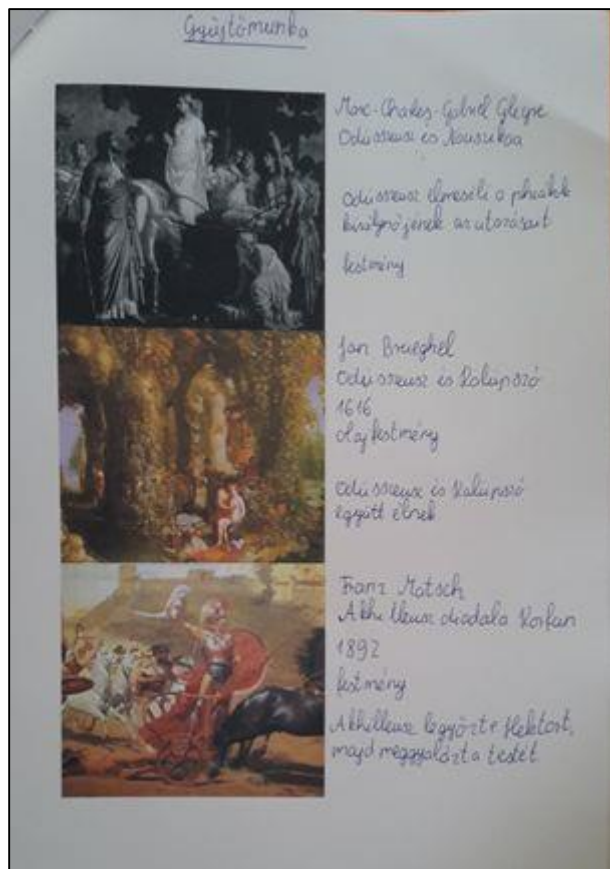 Gyűjtőmunka
Marc-Charles-Gabriel Gleyre
Odüsszeusz és Nauszikaa
Odüsszeusz elmeséli a phaiákok
királynőjének az utazásait
festmény
Jan Brueghel
Odüsszeusz és Kalüpszó
1616
olajfestmény
Odüsszeusz és Kalüpszó
együtt élnek
Franz Matsch
Akhilleusz diadala Korfun
1892
festmény
Akhilleusz legyőzte Hektort,
majd meggyalázta testét